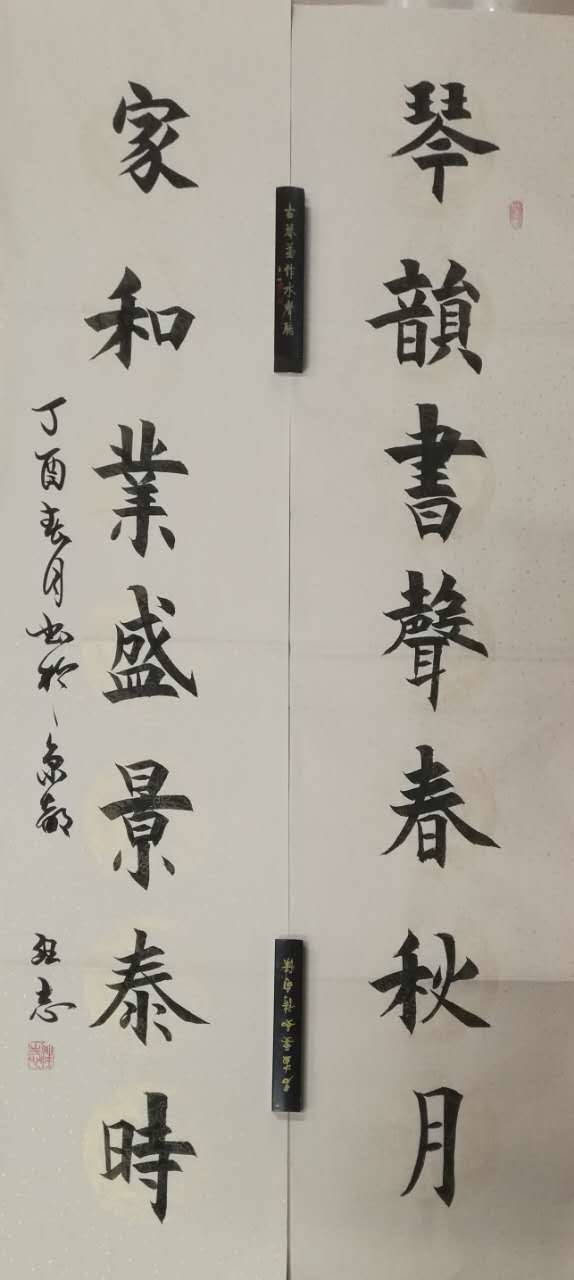 琴韻書聲春秋月
家和業盛景泰時
丁酉春月書於京都
志